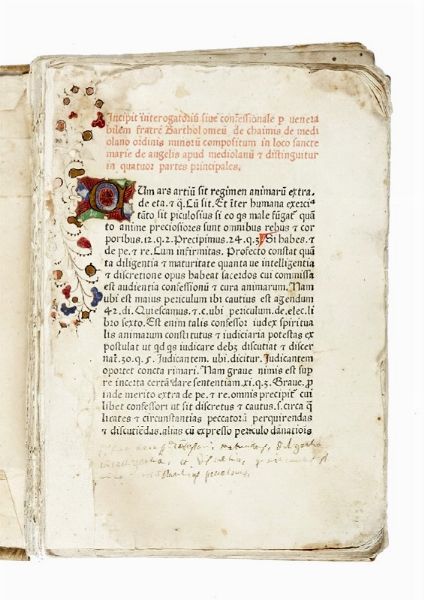 Incipit interrogatoriũ siue confessionale p venera
bilem fratrẽ Bartholomeũ de chaimis de medi
olano ordinis minorũ compositum in loco sancte
marie de angelis apud mediolanũ ⁊ distinguitur
in quatuor partes principales.
CUm ars artiũ sit regimen animarũ extra.
de eta. ⁊ q̃. Cũ sit. Et ĩter humana exerci
tãto sit piculosius si eo qs male fũgat̃ quã
to anime preciosiores sunt omnibus rebus ⁊ cor
poribus. 12. q. 2. Precipimus. 24. q. 3. Si habes. ⁊
de pe. ⁊ re. Cum infirmitas. Profecto constat quã
ta diligentia ⁊ maturitate quanta ue intelligentia
⁊ discretione opus habeat sacerdos cui commissa
est audientia confessionũ ⁊ cura animarum. Nam
ubi est maius periculum ibi cautius est agendum
42. di. Quiescamus. ⁊ c. ubi periculum. de elec. li
bro sexto. Est enim talis confessor iudex spiritua
lis animarum constitutus ⁊ iudiciaria potestas ex
postulat ut qd qs iudicare debz discutiat ⁊ discer
nat. 30. q. 5. Judicantem. ubi. dicitur. Judicantem
oportet concta rimari. Nam graue nimis est sup
re incerta certã dare sententiam. xi. q. 3. Graue. p
inde merito extra de pe. ⁊ re. omnis precipit̃ cui
libet confessori ut sit discretus ⁊ cautus. s. circa q̃
litates ⁊ circunstantias peccatorũ perquirendas
⁊ discutiẽdas. alias cũ expresso periculo dãnatiõis